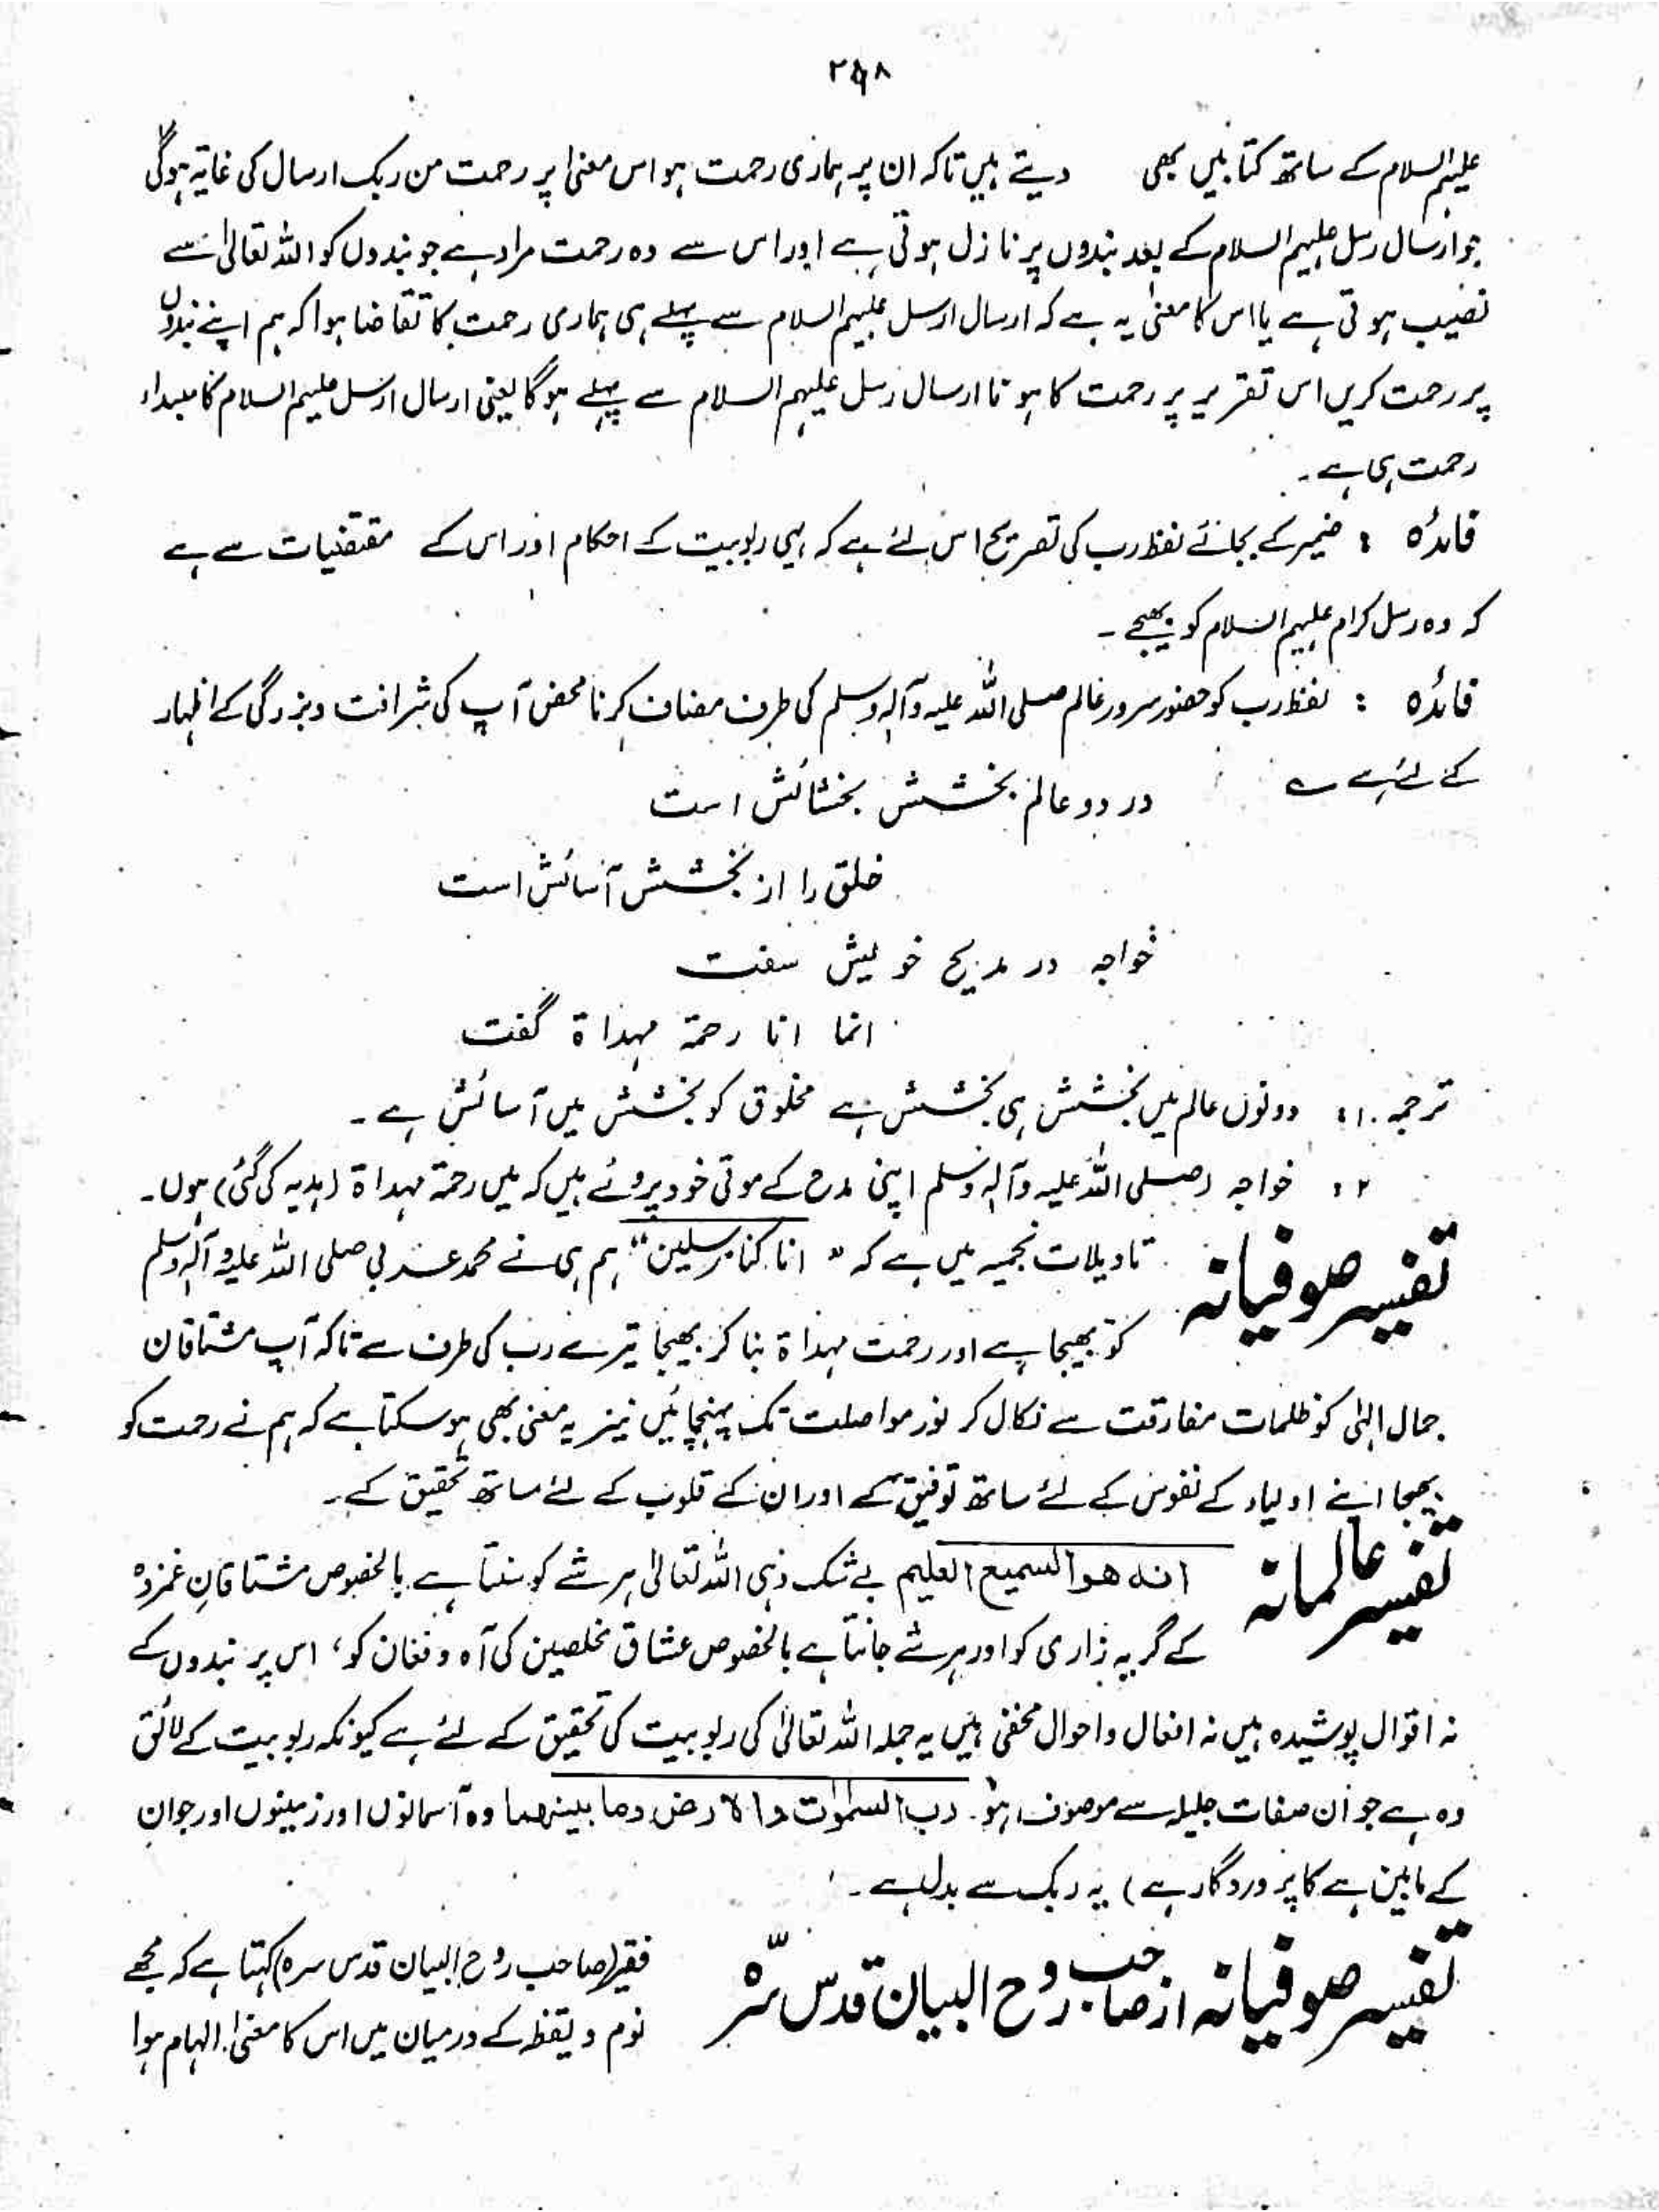 ۲۶۸
علیہم السلام کے ساتھ کتابیں بھی دیتے ہیں تاکہ ان پر ہماری رحمت ہو اس معنیٰ پر رحمت من ربک ارسال کی غایۃ ہوگی
جو ارسال رسل علیہم السلام کے بعد بندوں پر نازل ہوتی ہے اور اس سے وہ رحمت مراد ہے جو بندوں کو اللہ تعالیٰ سے
نصیب ہوتی ہے یا اس کا معنیٰ یہ ہے کہ ارسال الرسل علیہم السلام سے پہلے ہی ہماری رحمت کا تقاضا ہوا کہ ہم اپنے بندوں
پر رحمت کریں اس تقریر پر رحمت کا ہونا ارسال رسل علیہم السلام سے پہلے ہوگا یعنی ارسال الرسل علیہم السلام کا مبداء
رحمت ہی ہے ۔
فائدہ : ضمیر کے بجائے لفظ رب کی تصریح اس لئے ہے کہ یہی ربوبیت کے احکام اور اس کے مقتضیات سے ہے
کہ وہ رسل کرام علیہم السلام کو بھیجے ۔
فائدہ : لفظ رب کو حضور سرور عالم صلی اللہ علیہ وآلہٖ وسلم کی طرف مضاف کرنا محض آپ کی شرافت و بزرگی کے اظہار
کے لئے ہے ؎
در دو عالم بخشش بخشائش است
خلق را از بخشش آسائش است
خواجہ در مدیح خویش سفت
انما انا رحمۃ مہداۃ گفت
ترجمہ ۱: دونوں عالم میں بخشش ہی بخشش ہے مخلوق کو بخشش میں آسائش ہے ۔
۲: خواجہ (صلی اللہ علیہ وآلہٖ وسلم اپنی مدح کے موتی خود پروئے ہیں کہ میں رحمۃ مہداۃ (ہدیہ کی گئی) ہوں ۔
تفسیر صوفیانہ تاویلات نجمیہ میں ہے کہ " انا کنا مرسلین " ہم ہی نے محمد عربی صلی اللہ علیہ وآلہٖ وسلم
کو بھیجا ہے اور رحمت مہداۃ بنا کر بھیجا تیرے رب کی طرف سے تاکہ آپ مشتاقان
جمال الہٰی کو ظلمات مفارقت سے نکال کر نور مواصلت تک پہنچائیں نیز یہ معنیٰ بھی ہوسکتا ہے کہ ہم نے رحمت کو
بھیجا اپنے اولیاء کے نفوس کے لئے ساتھ توفیق کے اور ان کے قلوب کے لئے ساتھ تحقیق کے ۔
تفسیر عالمانہ انہ ھو السمیع العلیم بے شک وہی اللہ تعالیٰ ہر شے کو سنتا ہے بالخصوص مشتاقانِ غمزدہ
کے گریہ زاری کو اور ہر شے جانتا ہے بالخصوص عشاق مخلصین کی آہ و فغان کو، اس پر بندوں کے
نہ اقوال پوشیدہ ہیں نہ افعال و احوال مخفی ہیں یہ جملہ اللہ تعالیٰ کی ربوبیت کی تحقیق کے لئے ہے کیونکہ ربوبیت کے لائق
وہ ہے جو ان صفات جلیلہ سے موصوف ہو ۔ رب السمٰوٰت والارض وما بینھما وہ آسمانوں اور زمینوں اور جو ان
کے مابین ہے کا پروردگار ہے) یہ ربک سے بدل ہے ۔
تفسیر صوفیانہ از صاحب روح البیان قدس سرہٗ فقیر (صاحب روح البیان قدس سرہ) کہتا ہے کہ مجھے
نوم و یقظہ کے درمیان میں اس کا معنیٰ الہام ہوا